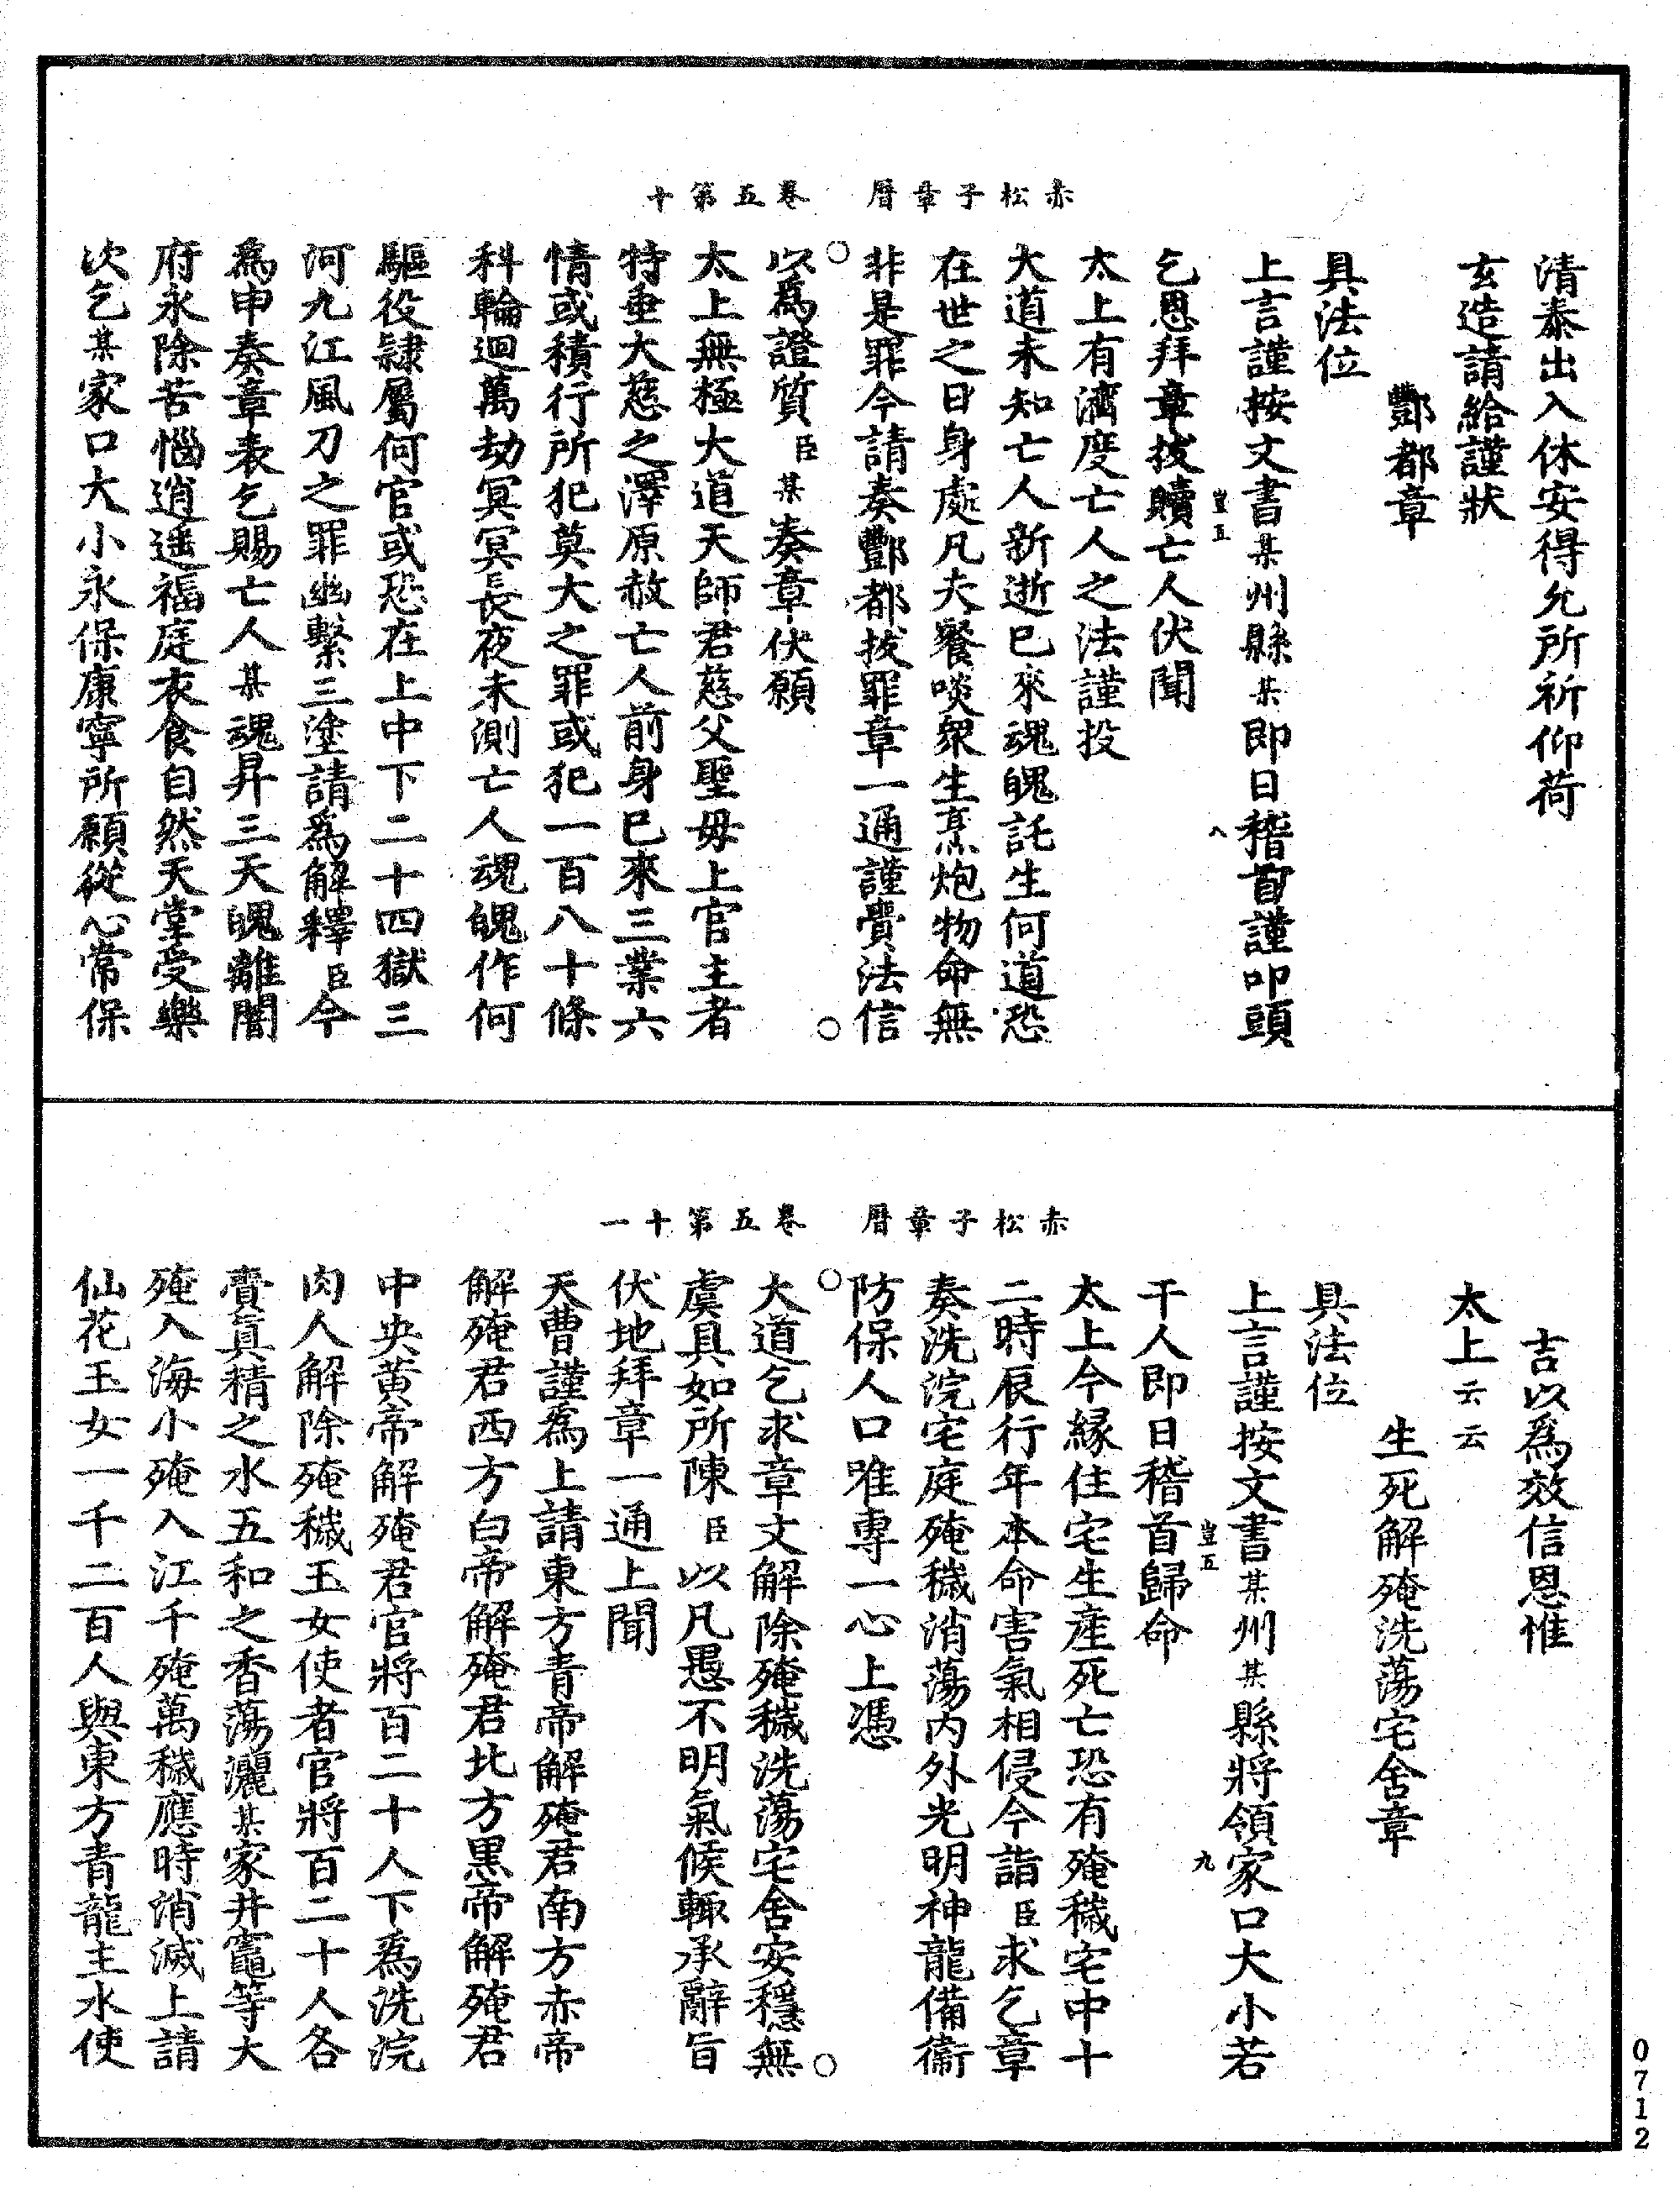 赤松子章曆 卷五第十
清泰出入休安得允所祈仰荷
玄造請給謹狀
酆都章
具法位
上言謹按文書某州縣某即日稽首謹叩頭
乞恩拜章拔贖亡人伏聞
豈五
八
太上有濟度亡人之法謹投
大道未知亡人新逝已來魂魄託生何道恐
在世之日身處凡夫飡啖衆生烹炮物命無
非是罪今請奏酆都拔罪章一通謹賫法信
以爲證質臣某奏章伏願
太上無極大道天師君慈父聖母上官主者
特垂大慈之澤原赦亡人前身已來三業六
情或積行所犯莫大之罪或犯一百八十條
科輪迴萬劫冥冥長夜未測亡人魂魄作何
驅役隸屬何官或恐在上中下二十四獄三
河九江風刀之罪幽繫三塗請爲解釋臣今
爲申奏章表乞賜亡人某魂昇三天魄離闇
府永除苦惱逍遥福庭衣食自然天堂受樂
次乞某家口大小永保康寧所願從心常保
赤松子章曆 卷五第十一
吉以爲效信恩惟
太上云云
生死解殗洗蕩宅舍章
具法位
上言謹按文書某州某縣將領家口大小若
干人即日稽首歸命
豈五
九
太上今緣住宅生産死亡恐有殗穢宅中十
二時辰行年本命害氣相侵今詣臣求乞章
奏洗浣宅庭殗穢消蕩内外光明神龍備衞
防保人口唯專一心上憑
大道乞求章文解除殗穢洗蕩宅舍安穩無
虞具如所陳臣以凡愚不明氣候輙承辭旨
伏地拜章一通上聞
天曹謹爲上請東方青帝解殗君南方赤帝
解殗君西方白帝解殗君北方黑帝解殗君
中央黄帝解殗君官將百二十人下爲洗浣
肉人解除殗穢玉女使者官將百二十人各
賫真精之水五和之香蕩灑某家井竈等大
殗入海小殗入江千殗萬穢應時消滅上請
仙花玉女一千二百人與東方青龍主水使
0712